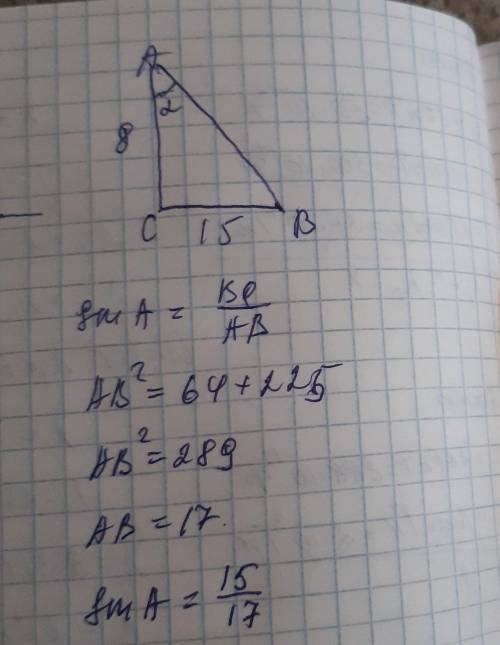 A
α
8
C 15 B
sin A = BC/AB
AB² = 64 + 225
AB² = 289
AB = 17.
sin A = 15/17